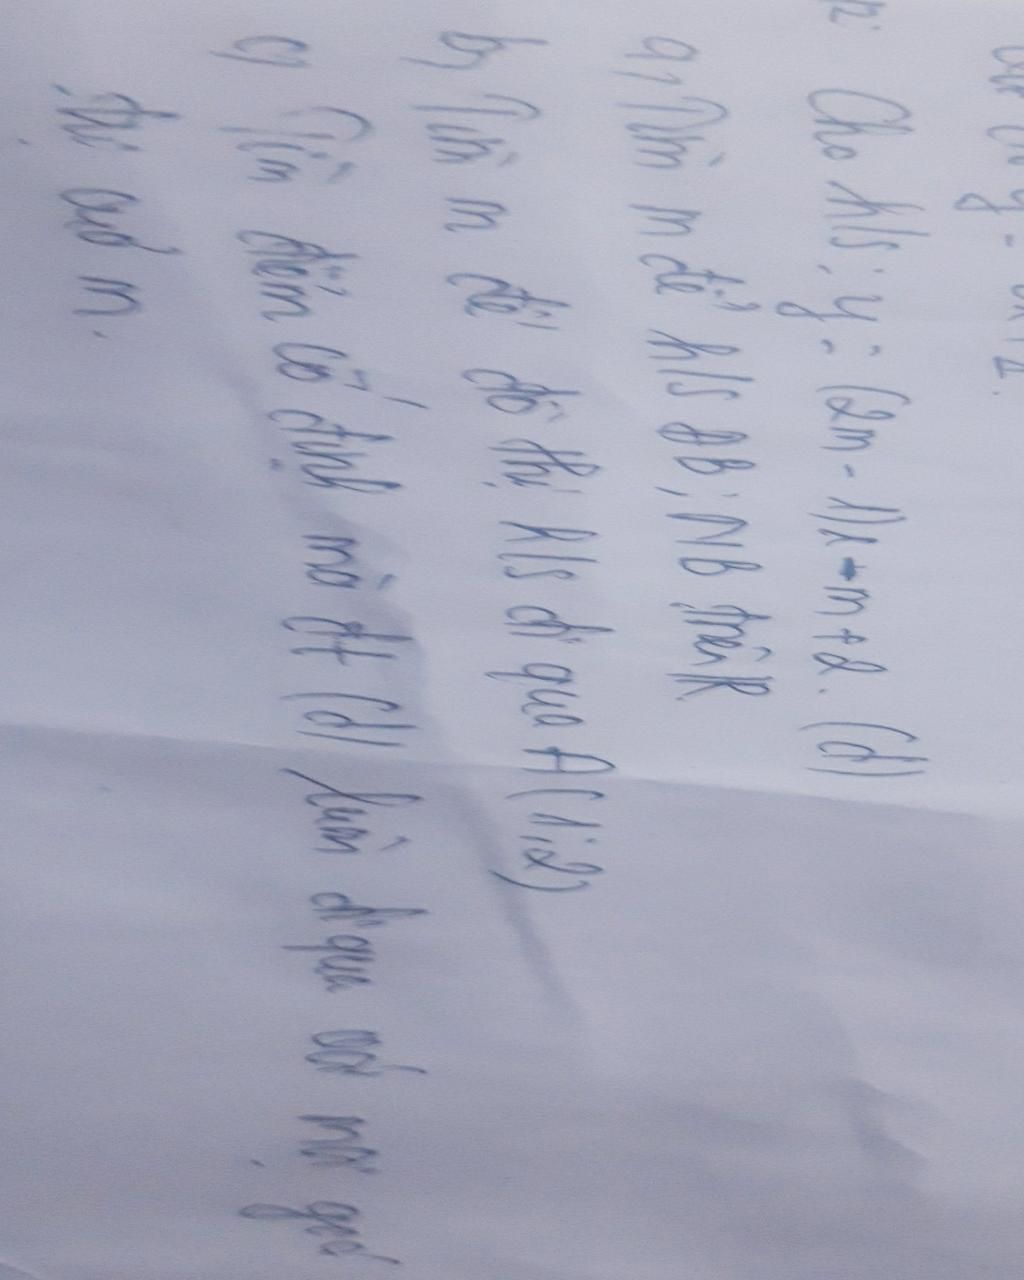 Cho h/s: y = (2m - 1)x - m + 2. (d)
a, Tìm m để h/s ĐB; NB trên R
b, Tìm m để đồ thị h/s đi qua A(1;2)
c, Tìm điểm cố định mà đt (d) luôn đi qua với mọi giá
trị của m.